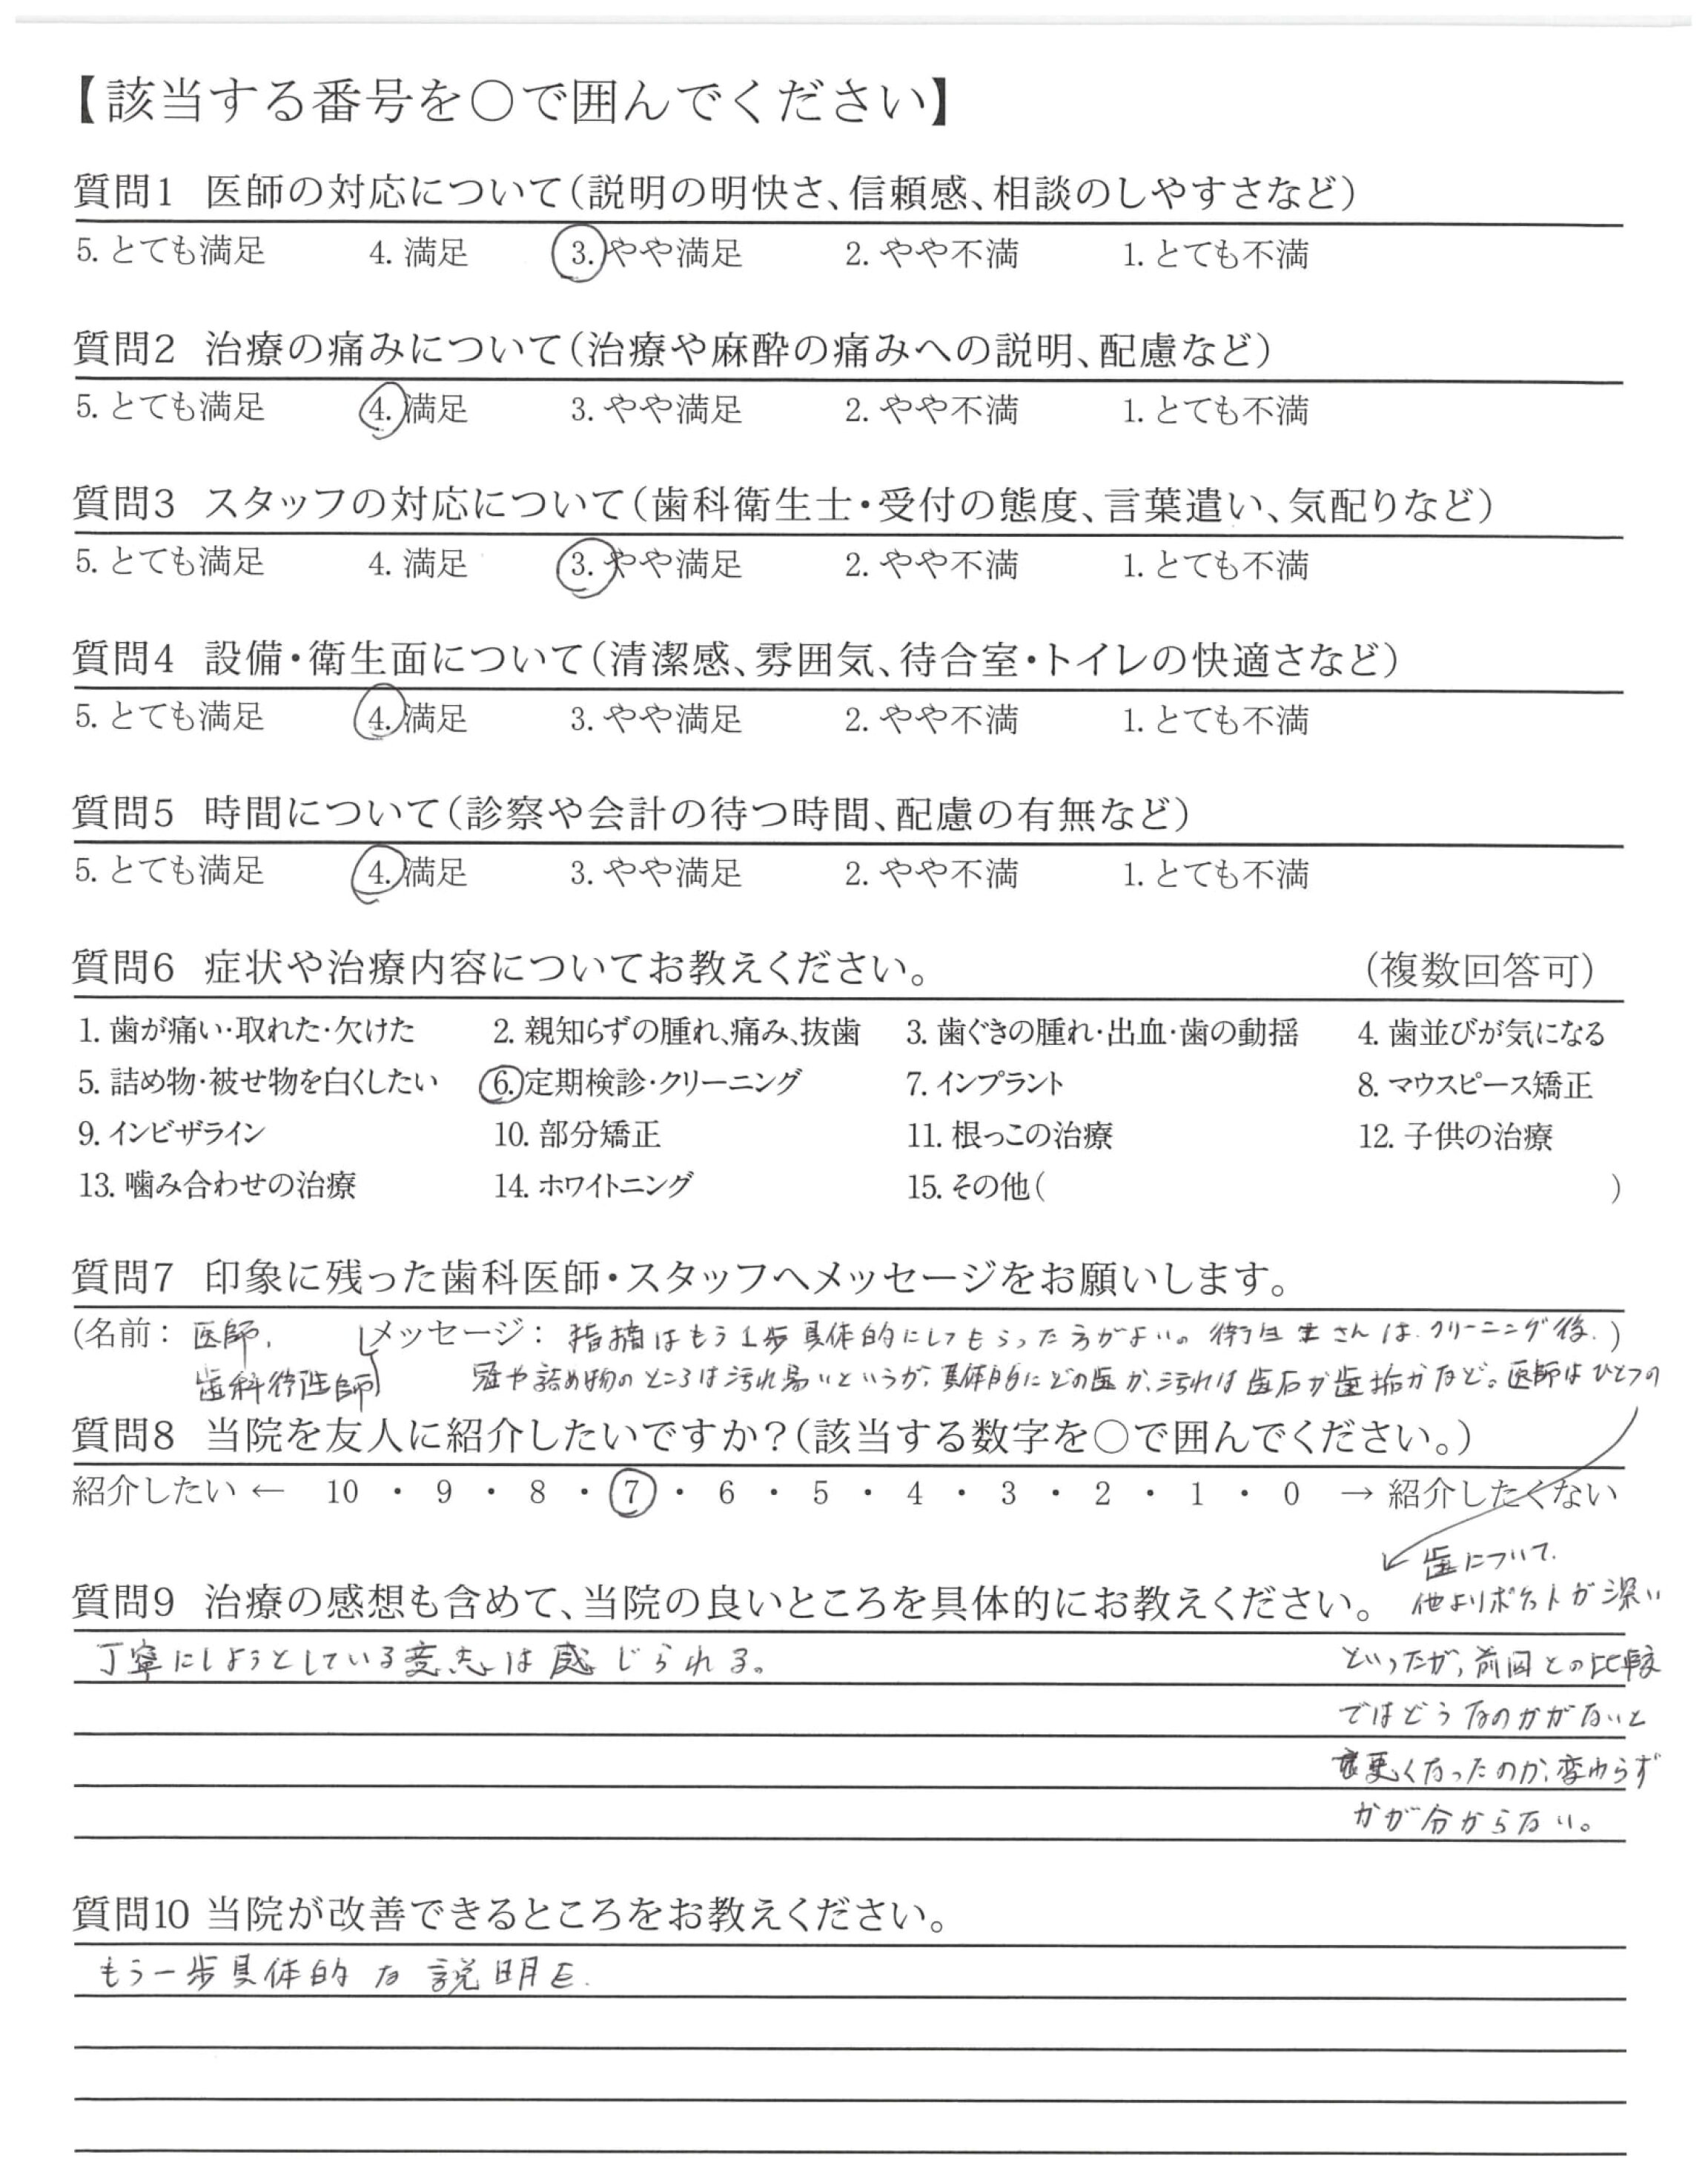 【該当する番号を〇で囲んでください】
質問1 医師の対応について(説明の明快さ、信頼感、相談のしやすさなど)
5. とても満足 4. 満足 3. やや満足 2. やや不満 1. とても不満
質問2 治療の痛みについて(治療や麻酔の痛みへの説明、配慮など)
5. とても満足 4. 満足 3. やや満足 2. やや不満 1. とても不満
質問3 スタッフの対応について(歯科衛生士・受付の態度、言葉遣い、気配りなど)
5. とても満足 4. 満足 3. やや満足 2. やや不満 1. とても不満
質問4 設備・衛生面について(清潔感、雰囲気、待合室・トイレの快適さなど)
5. とても満足 4. 満足 3. やや満足 2. やや不満 1. とても不満
質問5 時間について(診察や会計の待つ時間、配慮の有無など)
5. とても満足 4. 満足 3. やや満足 2. やや不満 1. とても不満
質問6 症状や治療内容についてお教えください。 (複数回答可)
1. 歯が痛い・取れた・欠けた 2. 親知らずの腫れ、痛み、抜歯 3. 歯ぐきの腫れ・出血・歯の動揺 4. 歯並びが気になる
5. 詰め物・被せ物を白くしたい 6. 定期検診・クリーニング 7. インプラント 8. マウスピース矯正
9. インビザライン 10. 部分矯正 11. 根っこの治療 12. 子供の治療
13. 噛み合わせの治療 14. ホワイトニング 15. その他( )
質問7 印象に残った歯科医師・スタッフへメッセージをお願いします。
(名前: 医師、 メッセージ: 指摘はもう1歩具体的にしてもらった方がよい。衛生士さんは、クリーニング後、)
歯科衛生師) 冠や詰め物のところは汚れ易いというが、具体的にどの歯か、汚れは歯石か歯垢かなど。医師はひとつの
質問8 当院を友人に紹介したいですか?(該当する数字を〇で囲んでください。)
紹介したい ← 10 ・ 9 ・ 8 ・ 7 ・ 6 ・ 5 ・ 4 ・ 3 ・ 2 ・ 1 ・ 0 → 紹介したくない
歯について、
他よりポケットが深い
といったが、前回との比較
ではどうなのかがないと
悪くなったのか、変わらず
かが分からない。
質問9 治療の感想も含めて、当院の良いところを具体的にお教えください。
丁寧にしようとしている意志は感じられる。
質問10 当院が改善できるところをお教えください。
もう一歩具体的な説明を.